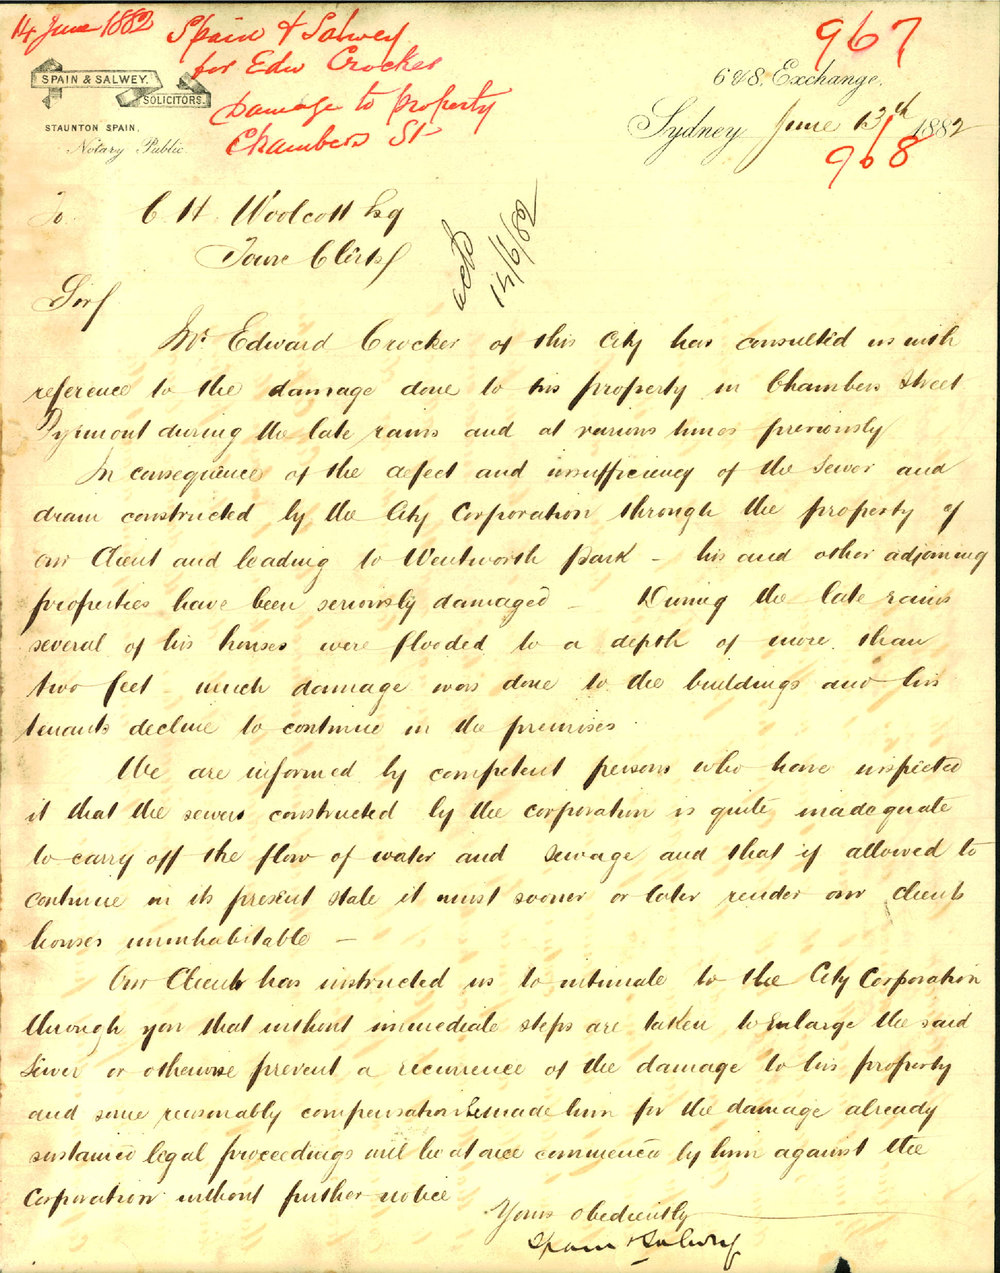 14 June 1882
Spain & Salwey
for Edw Crocker
Damage to property
Chambers St
967
968
SPAIN & SALWEY.
SOLICITORS.
STAUNTON SPAIN,
Notary Public.
6 & 8, Exchange,
Sydney June 13th 1882
To C H Woolcott Esq
Town Clerk
14/6/82
Sir
Mr Edward Crocker of this City has consulted us with
reference to the damage done to his property in Chambers Street
Pyrmont during the late rains and at various times previously
In consequence of the defect and insufficiency of the Sewer and
drain constructed by the City Corporation through the property of
our Client and leading to Wentworth Park - his and other adjoining
properties have been seriously damaged - During the late rains
several of his houses were flooded to a depth of more than
two feet - much damage was done to the buildings and his
tenants decline to continue in the premises.
We are informed by competent persons who have inspected
it that the sewers constructed by the corporation is quite inadequate
to carry off the flow of water and sewage and that if allowed to
continue in its present state it must sooner or later render our clients
houses uninhabitable -
Our Client has instructed us to intimate to the City Corporation
through you that without immediate steps are taken to enlarge the said
Sewer or otherwise prevent a recurrence of the damage to his property
and some reasonably compensation be made him for the damage already
sustained legal proceedings will be at once commenced by him against the
Corporation without further notice
Yours obediently
Spain & Salwey